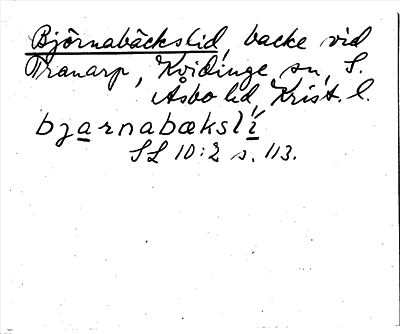 Björnabäckslid, backe vid
Tranarp, Kvidinge sn, S.
Åsbo hd, Krist. l.
bjarnabæksli
SL 10:2 s. 113.